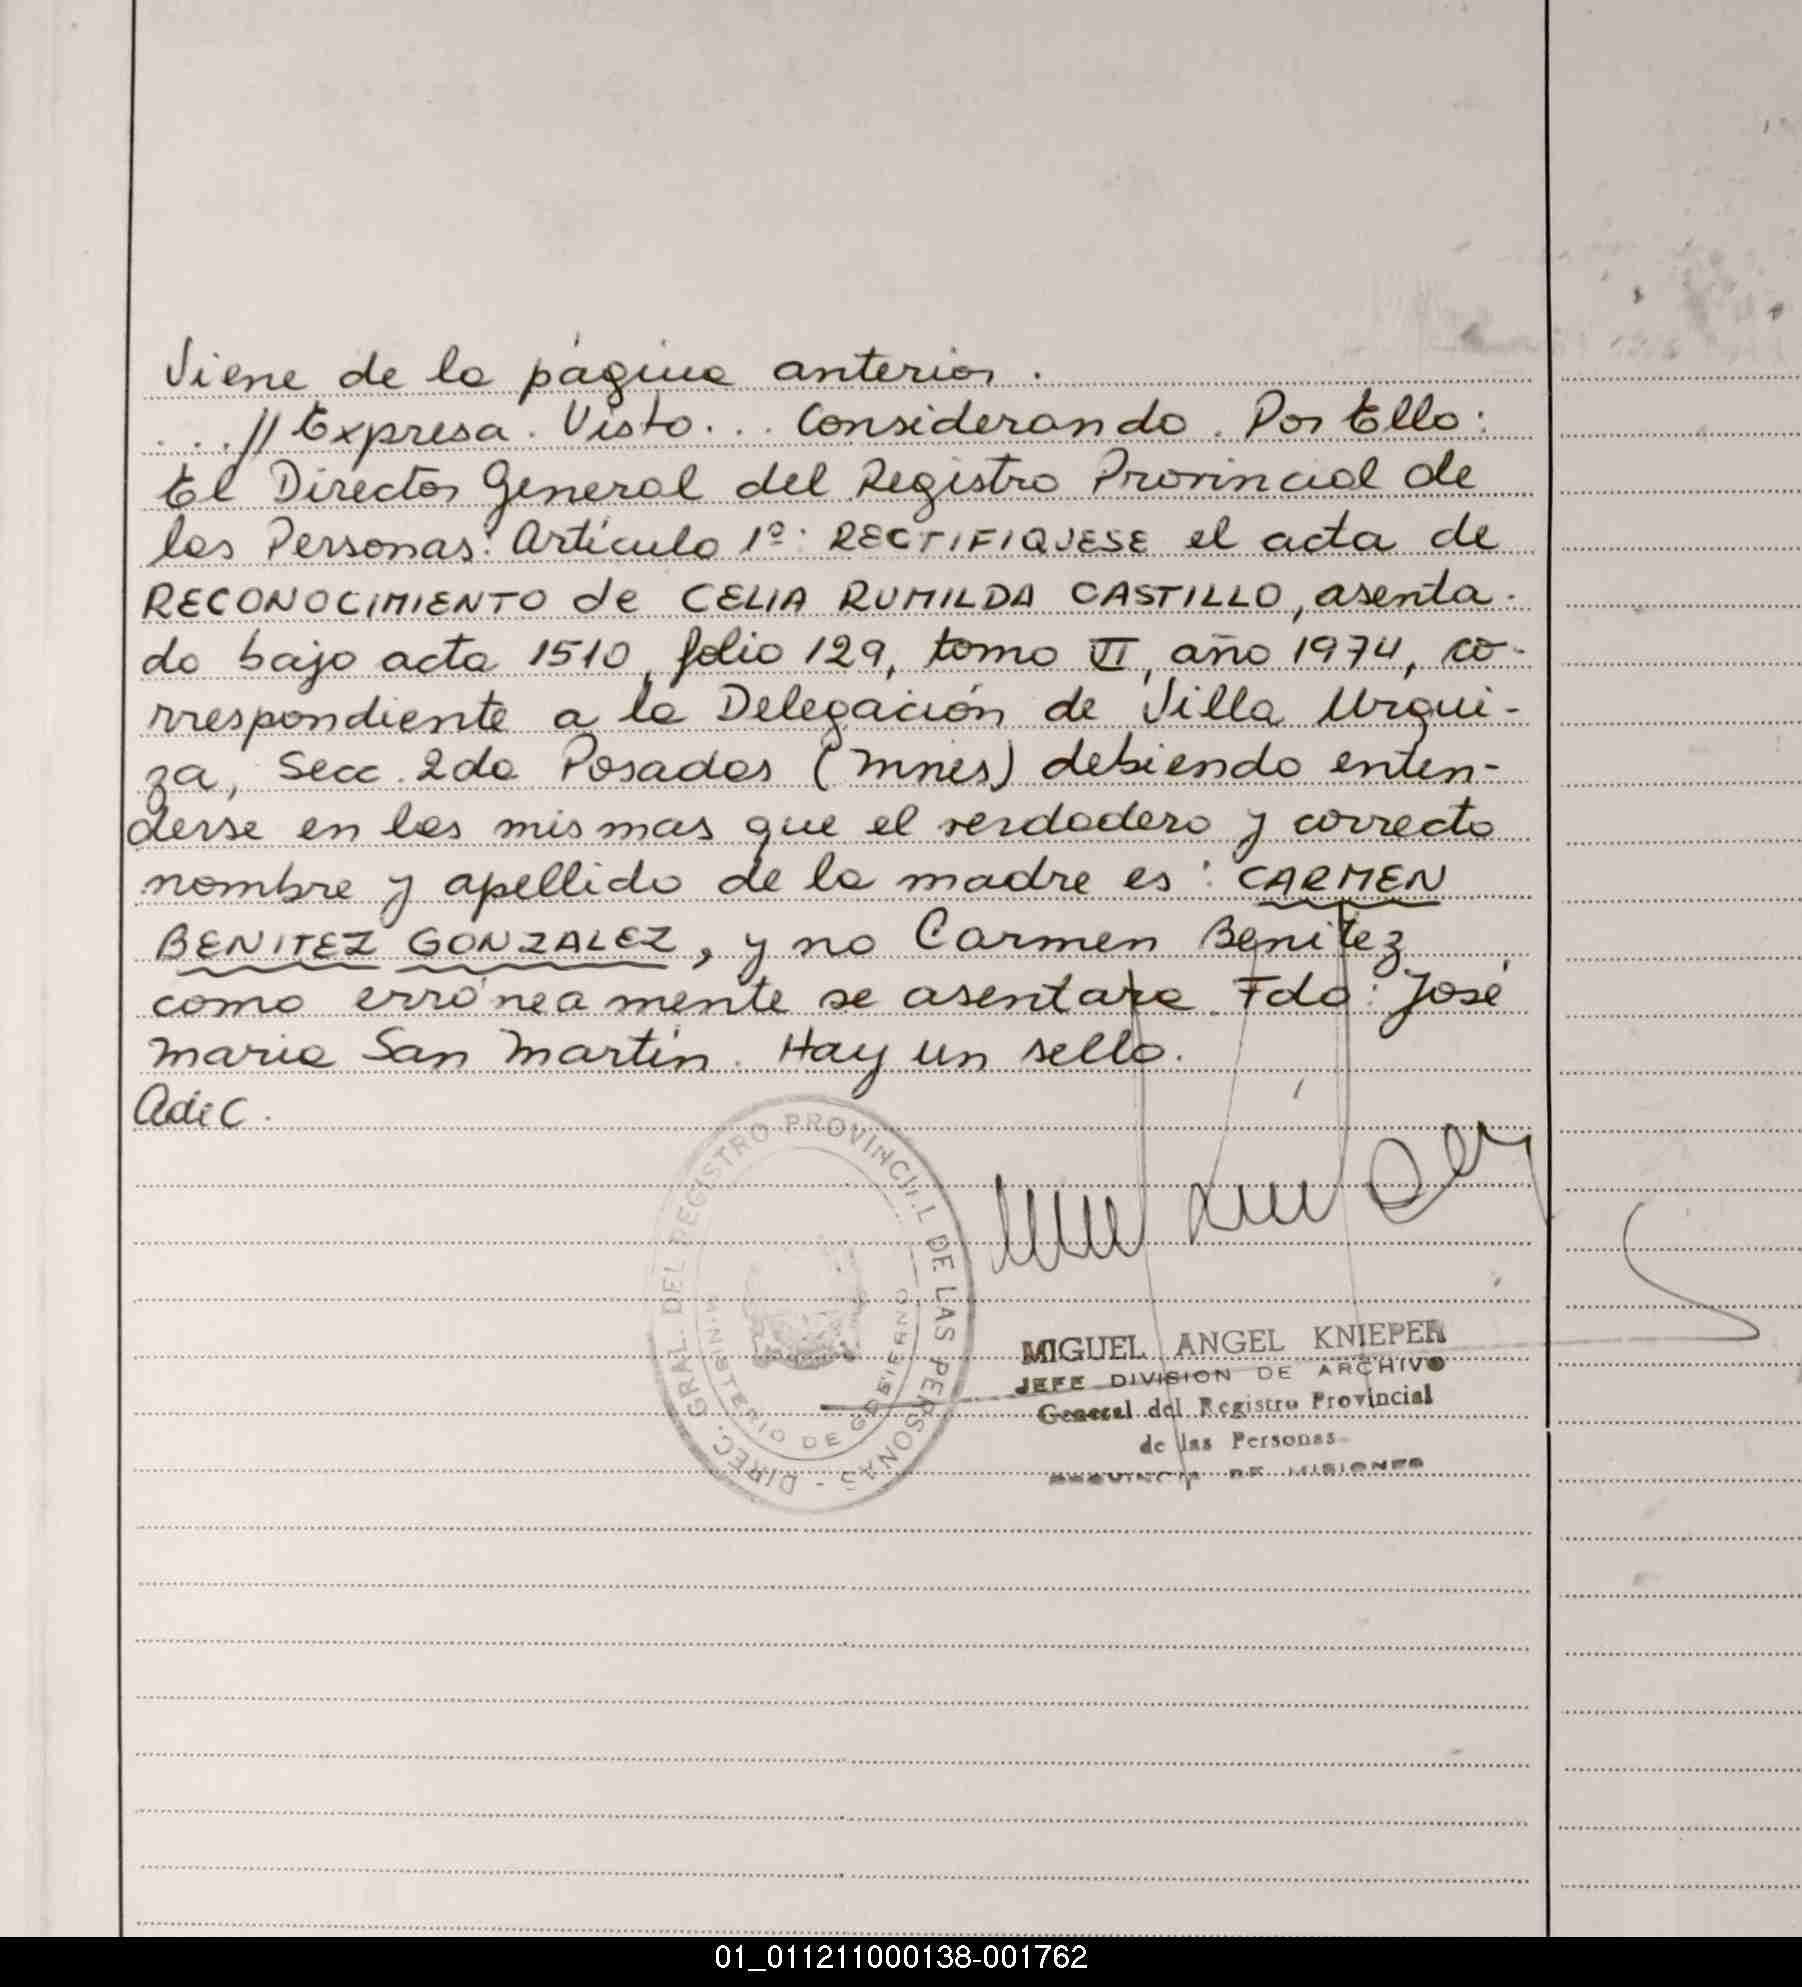 Viene de la página anterior.
....// Expresa. Visto... Considerando. Por Ello:
El Director General del Registro Provincial de
las Personas: Artículo 1º: RECTIFIQUESE el acta de
RECONOCIMIENTO de CELIA RUMILDA CASTILLO, asenta-
do bajo acta 1510, folio 129, tomo VI, año 1974, co-
rrespondiente a la Delegación de Villa Urqui-
za, Secc. 2da Posadas (Mnes) debiendo enten-
derse en las mismas que el verdadero y correcto
nombre y apellido de la madre es: CARMEN
BENITEZ GONZALEZ, y no Carmen Benitez,
como erróneamente se asentara. Fdo: José
Maria San Martín. Hay un sello.
AdeC.
DIREC. GRAL. DEL REGISTRO PROVINCIAL DE LAS PERSONAS -
MINISTERIO DE GOBIERNO
MIGUEL ANGEL KNIEPER
JEFE DIVISION DE ARCHIVO
General del Registro Provincial
de las Personas
PROVINCIA DE MISIONES
01_011211000138-001762